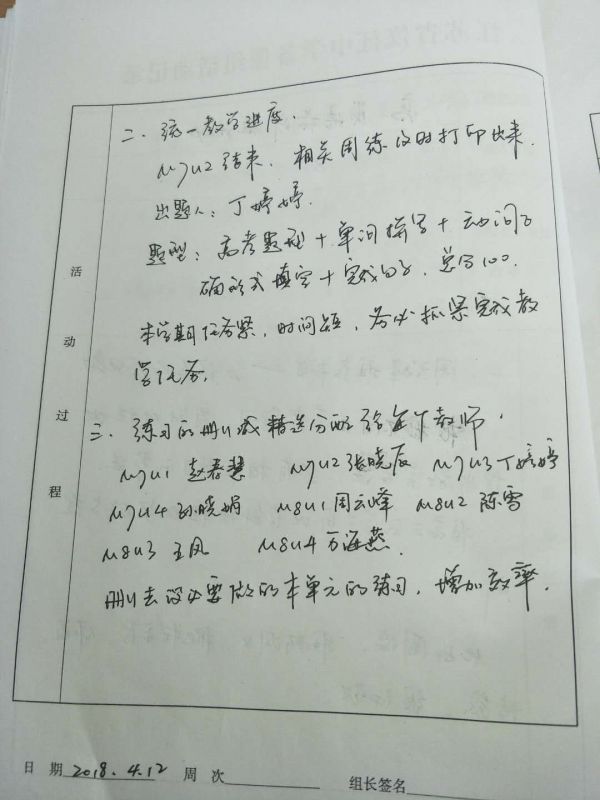 二、统一教学进度.
M7U2结束, 相关周练及时打印出来.
出题人: 丁婷婷.
题型: 高考题型 + 单词拼写 + 动词正
确形式填空 + 完成句子, 总分100.
本学期任务紧, 时间短, 务必抓紧完成教
学任务.
三、练习的删减精选分配给各个教师.
M7U1 赵春慧 M7U2 张晓辰 M7U3 丁婷婷
M7U4 孙晓娟 M8U1 周云峰 M8U2 陈雪
M8U3 王凤 M8U4 万海燕.
删去没必要做的本单元的练习, 增加效率.
活动过程
日 期 2018.4.12 周 次 组长签名